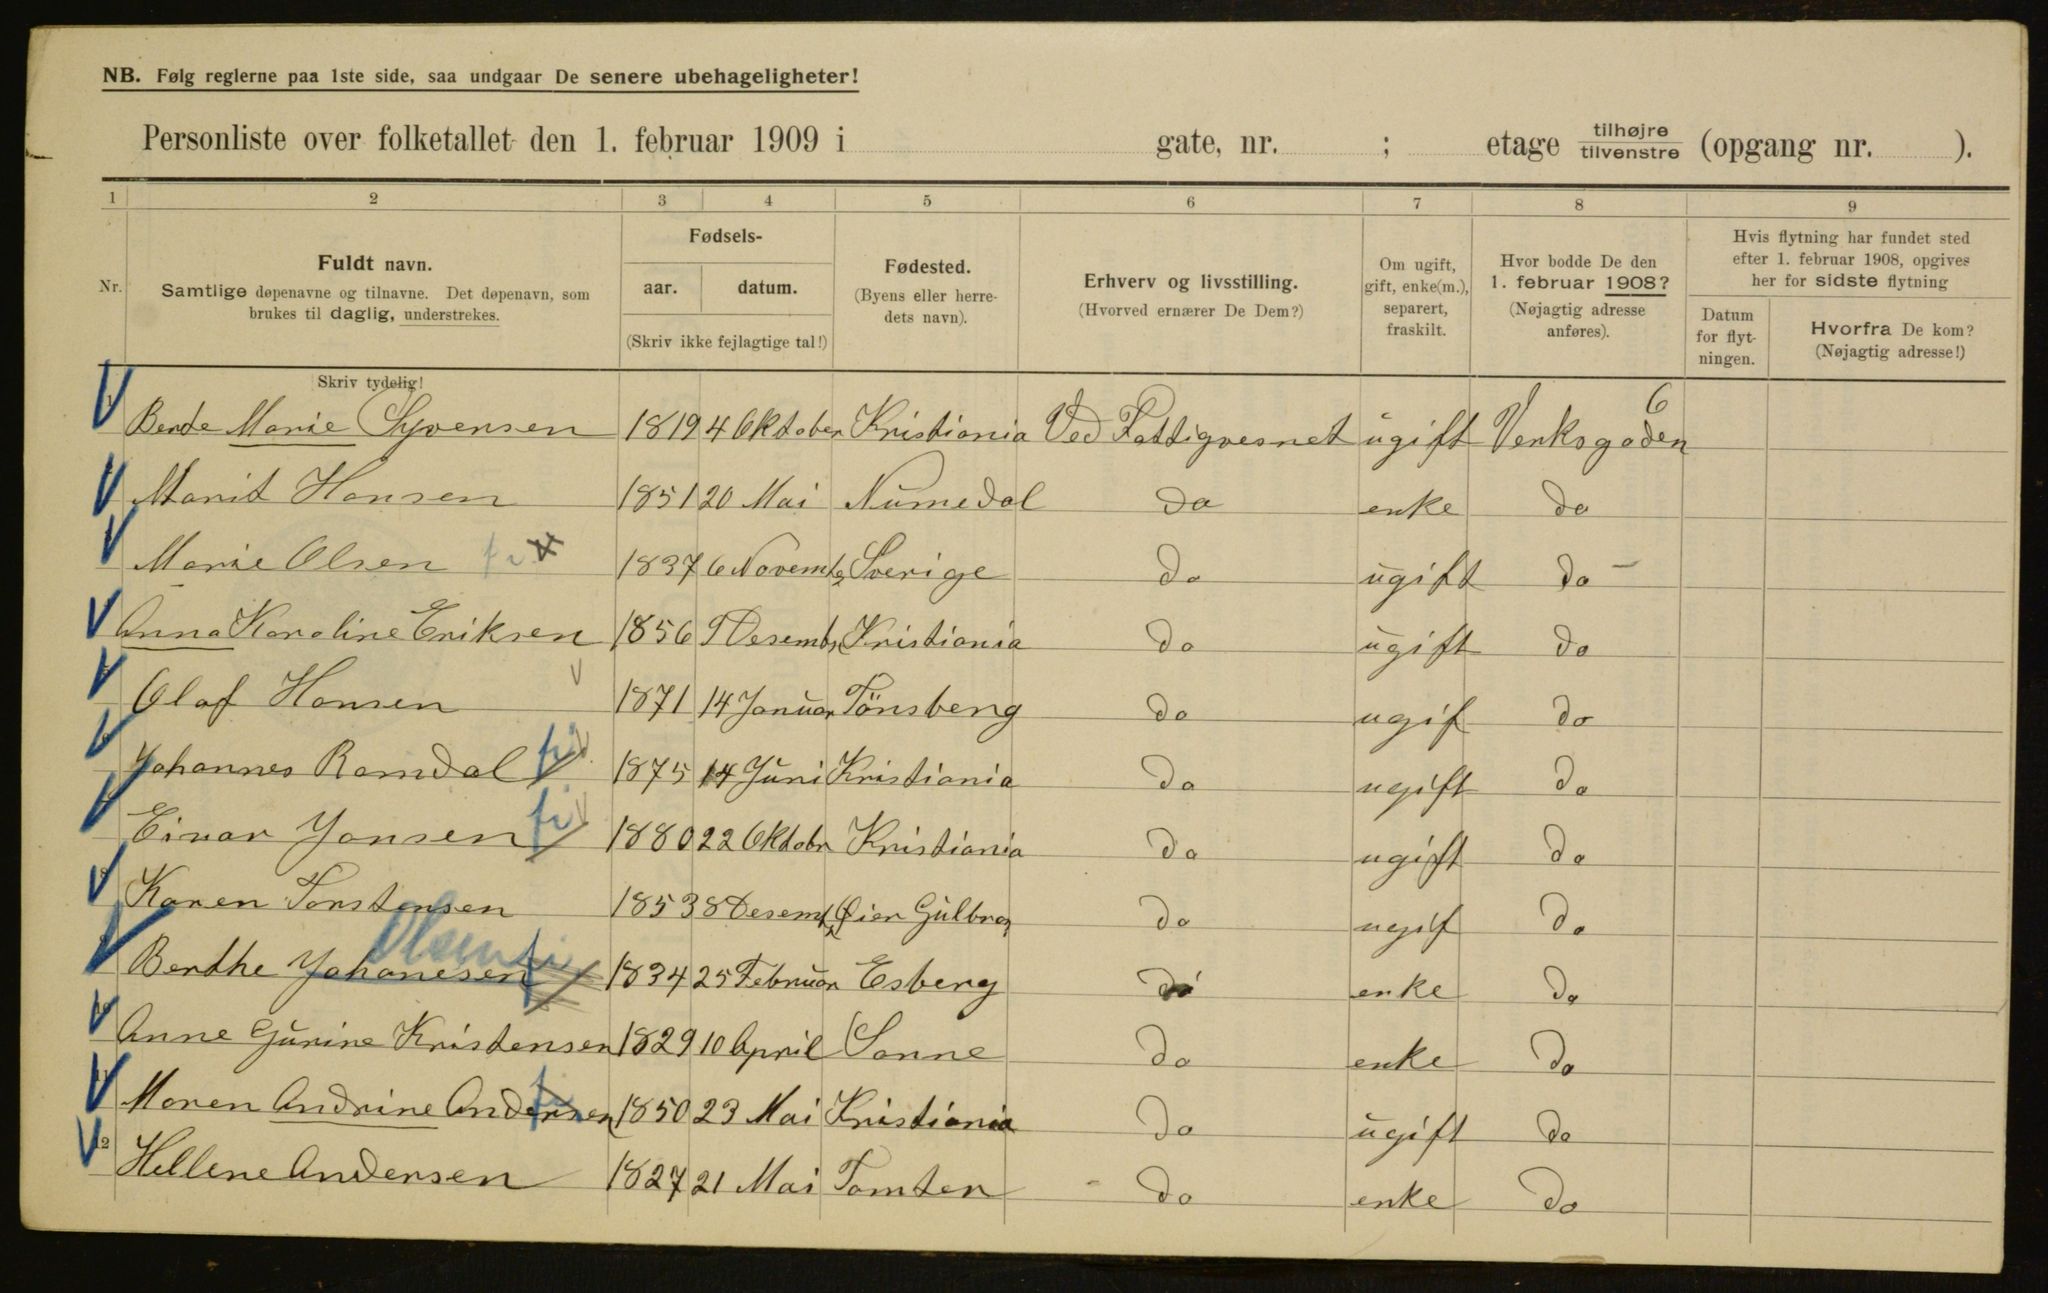 NB. Følg reglerne paa 1ste side, saa undgaar De senere ubehageligheter!
Personliste over folketallet den 1. februar 1909 i gate, nr. ; etage tilhøjre/tilvenstre (opgang nr. ).
1 2 3 4 5 6 7 8 9
Nr. Fuldt navn. Samtlige døpenavne og tilnavne. Det døpenavn, som brukes til daglig, understrekes. Fødsels- aar. datum. (Skriv ikke fejlagtige tal!) Fødested. (Byens eller herredets navn). Erhverv og livsstilling. (Hvorved ernærer De Dem?) Om ugift, gift, enke(m.), separert, fraskilt. Hvor bodde De den 1. februar 1908? (Nøjagtig adresse anføres). Hvis flytning har fundet sted efter 1. februar 1908, opgives her for sidste flytning Datum for flytningen. Hvorfra De kom? (Nøjagtig adresse!)
Skriv tydelig!
Berte Marie Syvensen 1819 4 Oktober Kristiania Ved Fattigvesnet ugift Verksgaden 6
Marit Hansen 1851 20 Mai Numedal do enke do
Marie Olsen 1837 6 Novemb Sverige do ugift do
Anna Karoline Eriksen 1856 9 Desemb Kristiania do ugift do
Olaf Hansen 1871 14 Januar Tönsberg do ugif do
Johannes Ramdal fi 1875 14 Juni Kristiania do ugift do
Einar Jansen fi 1880 22 Oktobr Kristiania do ugift do
Karen Torstensen 1853 8 Desemb Öier Gulbran do ugif do
Berthe Johanesen Olsen fi 1834 25 Februar Esberg do enke do
10 Anne Gurine Kristensen 1829 10 April Sanne do enke do
11 Maren Andrine Andersen 1850 23 Mai Kristiania do ugift do
12 Hellene Andersen 1827 21 Mai Tomter do enke do